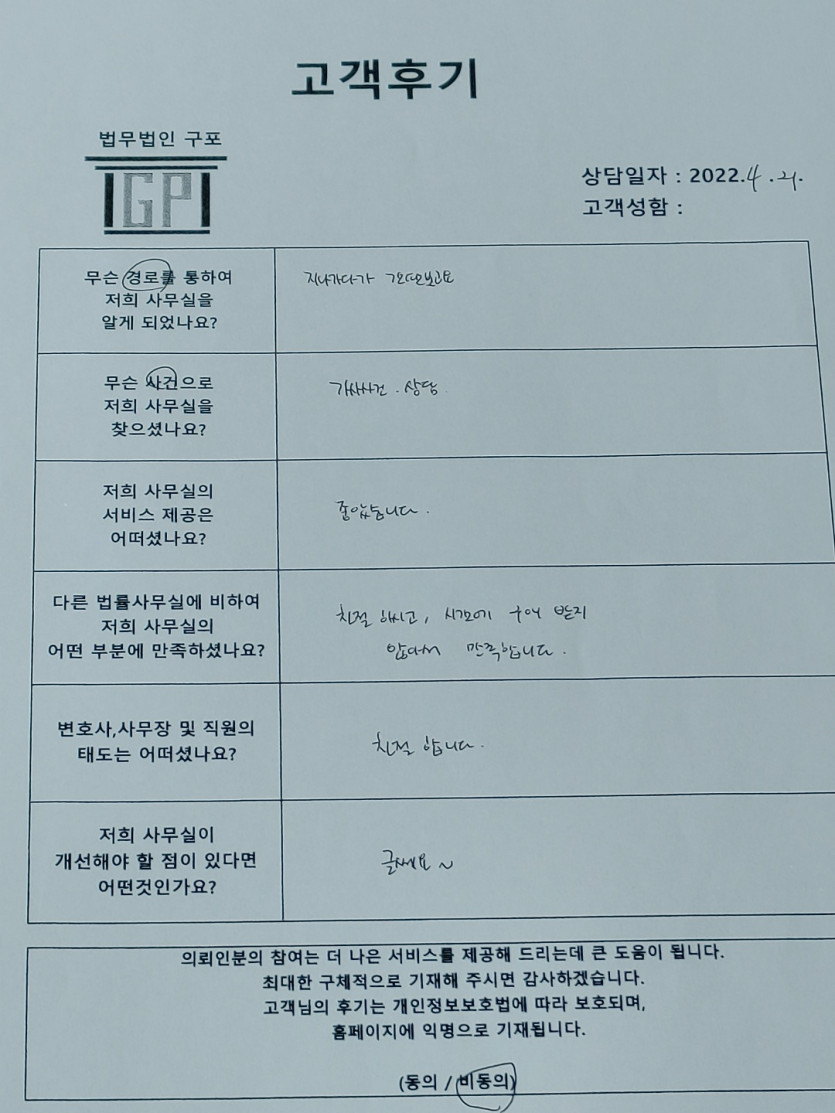 고객후기
법무법인 구포
GP
상담일자 : 2022.4.21.
고객성함 :
무슨 경로를 통하여
저희 사무실을
알게 되었나요?
지나가다가 간판보고요
무슨 사건으로
저희 사무실을
찾으셨나요?
가사사건 . 상담
저희 사무실의
서비스 제공은
어떠셨나요?
좋았습니다.
다른 법률사무실에 비하여
저희 사무실의
어떤 부분에 만족하셨나요?
친절하시고, 시간에 구애 받지
않아서 만족합니다.
변호사,사무장 및 직원의
태도는 어떠셨나요?
친절 합니다.
저희 사무실이
개선해야 할 점이 있다면
어떤것인가요?
글쎄요~
의뢰인분의 참여는 더 나은 서비스를 제공해 드리는데 큰 도움이 됩니다.
최대한 구체적으로 기재해 주시면 감사하겠습니다.
고객님의 후기는 개인정보보호법에 따라 보호되며,
홈페이지에 익명으로 기재됩니다.
(동의 / 비동의)